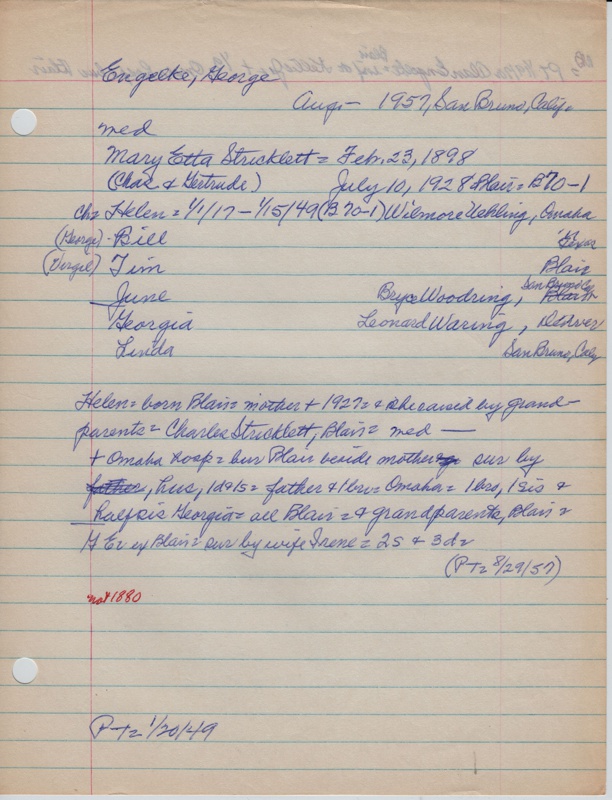 Engelke, George
Aug - 1957, San Bruno, Calif.
med
Mary Etta Stricklett = Feb. 23, 1898
(Chas & Gertrude) July 10, 1928 Blair = B70-1
Ch = Helen = 1/1/17 - 1/15/49 (B70-1) Wilmore Uehling, Omaha
(George) - Bill Texas
(Virgil) Tim Blair
June Bryce Woodring, San Bruno Ca Blair
Georgia Leonard Waring, Denver
Linda San Bruno, Calif
Helen = born Blair = mother + 1927 = & she raised by grand-
parents = Charles Stricklett, Blair = med —
+ Omaha Hosp = bur Blair beside mother sur by
father, hus, 1d & 1s = father & 1 bro = Omaha = 1 bro, 1 sis &
half sis Georgia = all Blair = & grandparents, Blair =
G E ex Blair = sur by wife Irene = 2s & 3d =
(PT = 8/29/57)
not 1880
PT = 1/20/49